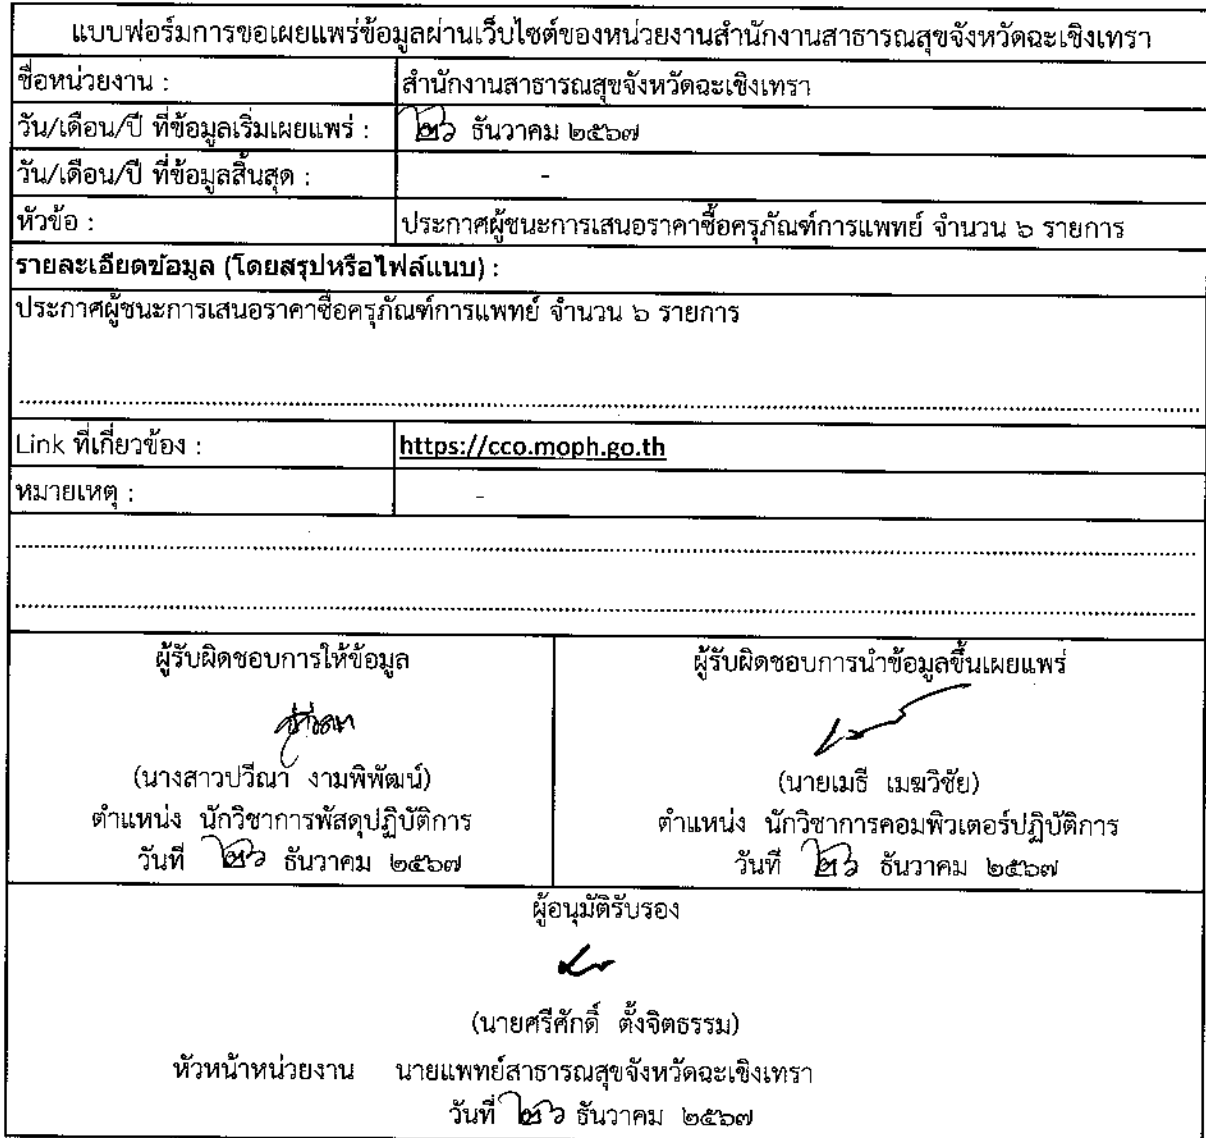 แบบฟอร์มการขอเผยแพร่ข้อมูลผ่านเว็บไซต์ของหน่วยงานสำนักงานสาธารณสุขจังหวัดฉะเชิงเทรา
ชื่อหน่วยงาน : สำนักงานสาธารณสุขจังหวัดฉะเชิงเทรา
วัน/เดือน/ปี ที่ข้อมูลเริ่มเผยแพร่ : ๒๖ ธันวาคม ๒๕๖๗
วัน/เดือน/ปี ที่ข้อมูลสิ้นสุด : -
หัวข้อ : ประกาศผู้ชนะการเสนอราคาซื้อครุภัณฑ์การแพทย์ จำนวน ๖ รายการ
รายละเอียดข้อมูล (โดยสรุปหรือไฟล์แนบ) :
ประกาศผู้ชนะการเสนอราคาซื้อครุภัณฑ์การแพทย์ จำนวน ๖ รายการ
Link ที่เกี่ยวข้อง : https://cco.moph.go.th
หมายเหตุ : -
ผู้รับผิดชอบการให้ข้อมูล
(นางสาวปวีณา งามพิพัฒน์)
ตำแหน่ง นักวิชาการพัสดุปฏิบัติการ
วันที่ ๒๖ ธันวาคม ๒๕๖๗
ผู้รับผิดชอบการนำข้อมูลขึ้นเผยแพร่
(นายเมธี เมฆวิชัย)
ตำแหน่ง นักวิชาการคอมพิวเตอร์ปฏิบัติการ
วันที่ ๒๖ ธันวาคม ๒๕๖๗
ผู้อนุมัติรับรอง
(นายศรีศักดิ์ ตั้งจิตธรรม)
หัวหน้าหน่วยงาน นายแพทย์สาธารณสุขจังหวัดฉะเชิงเทรา
วันที่ ๒๖ ธันวาคม ๒๕๖๗